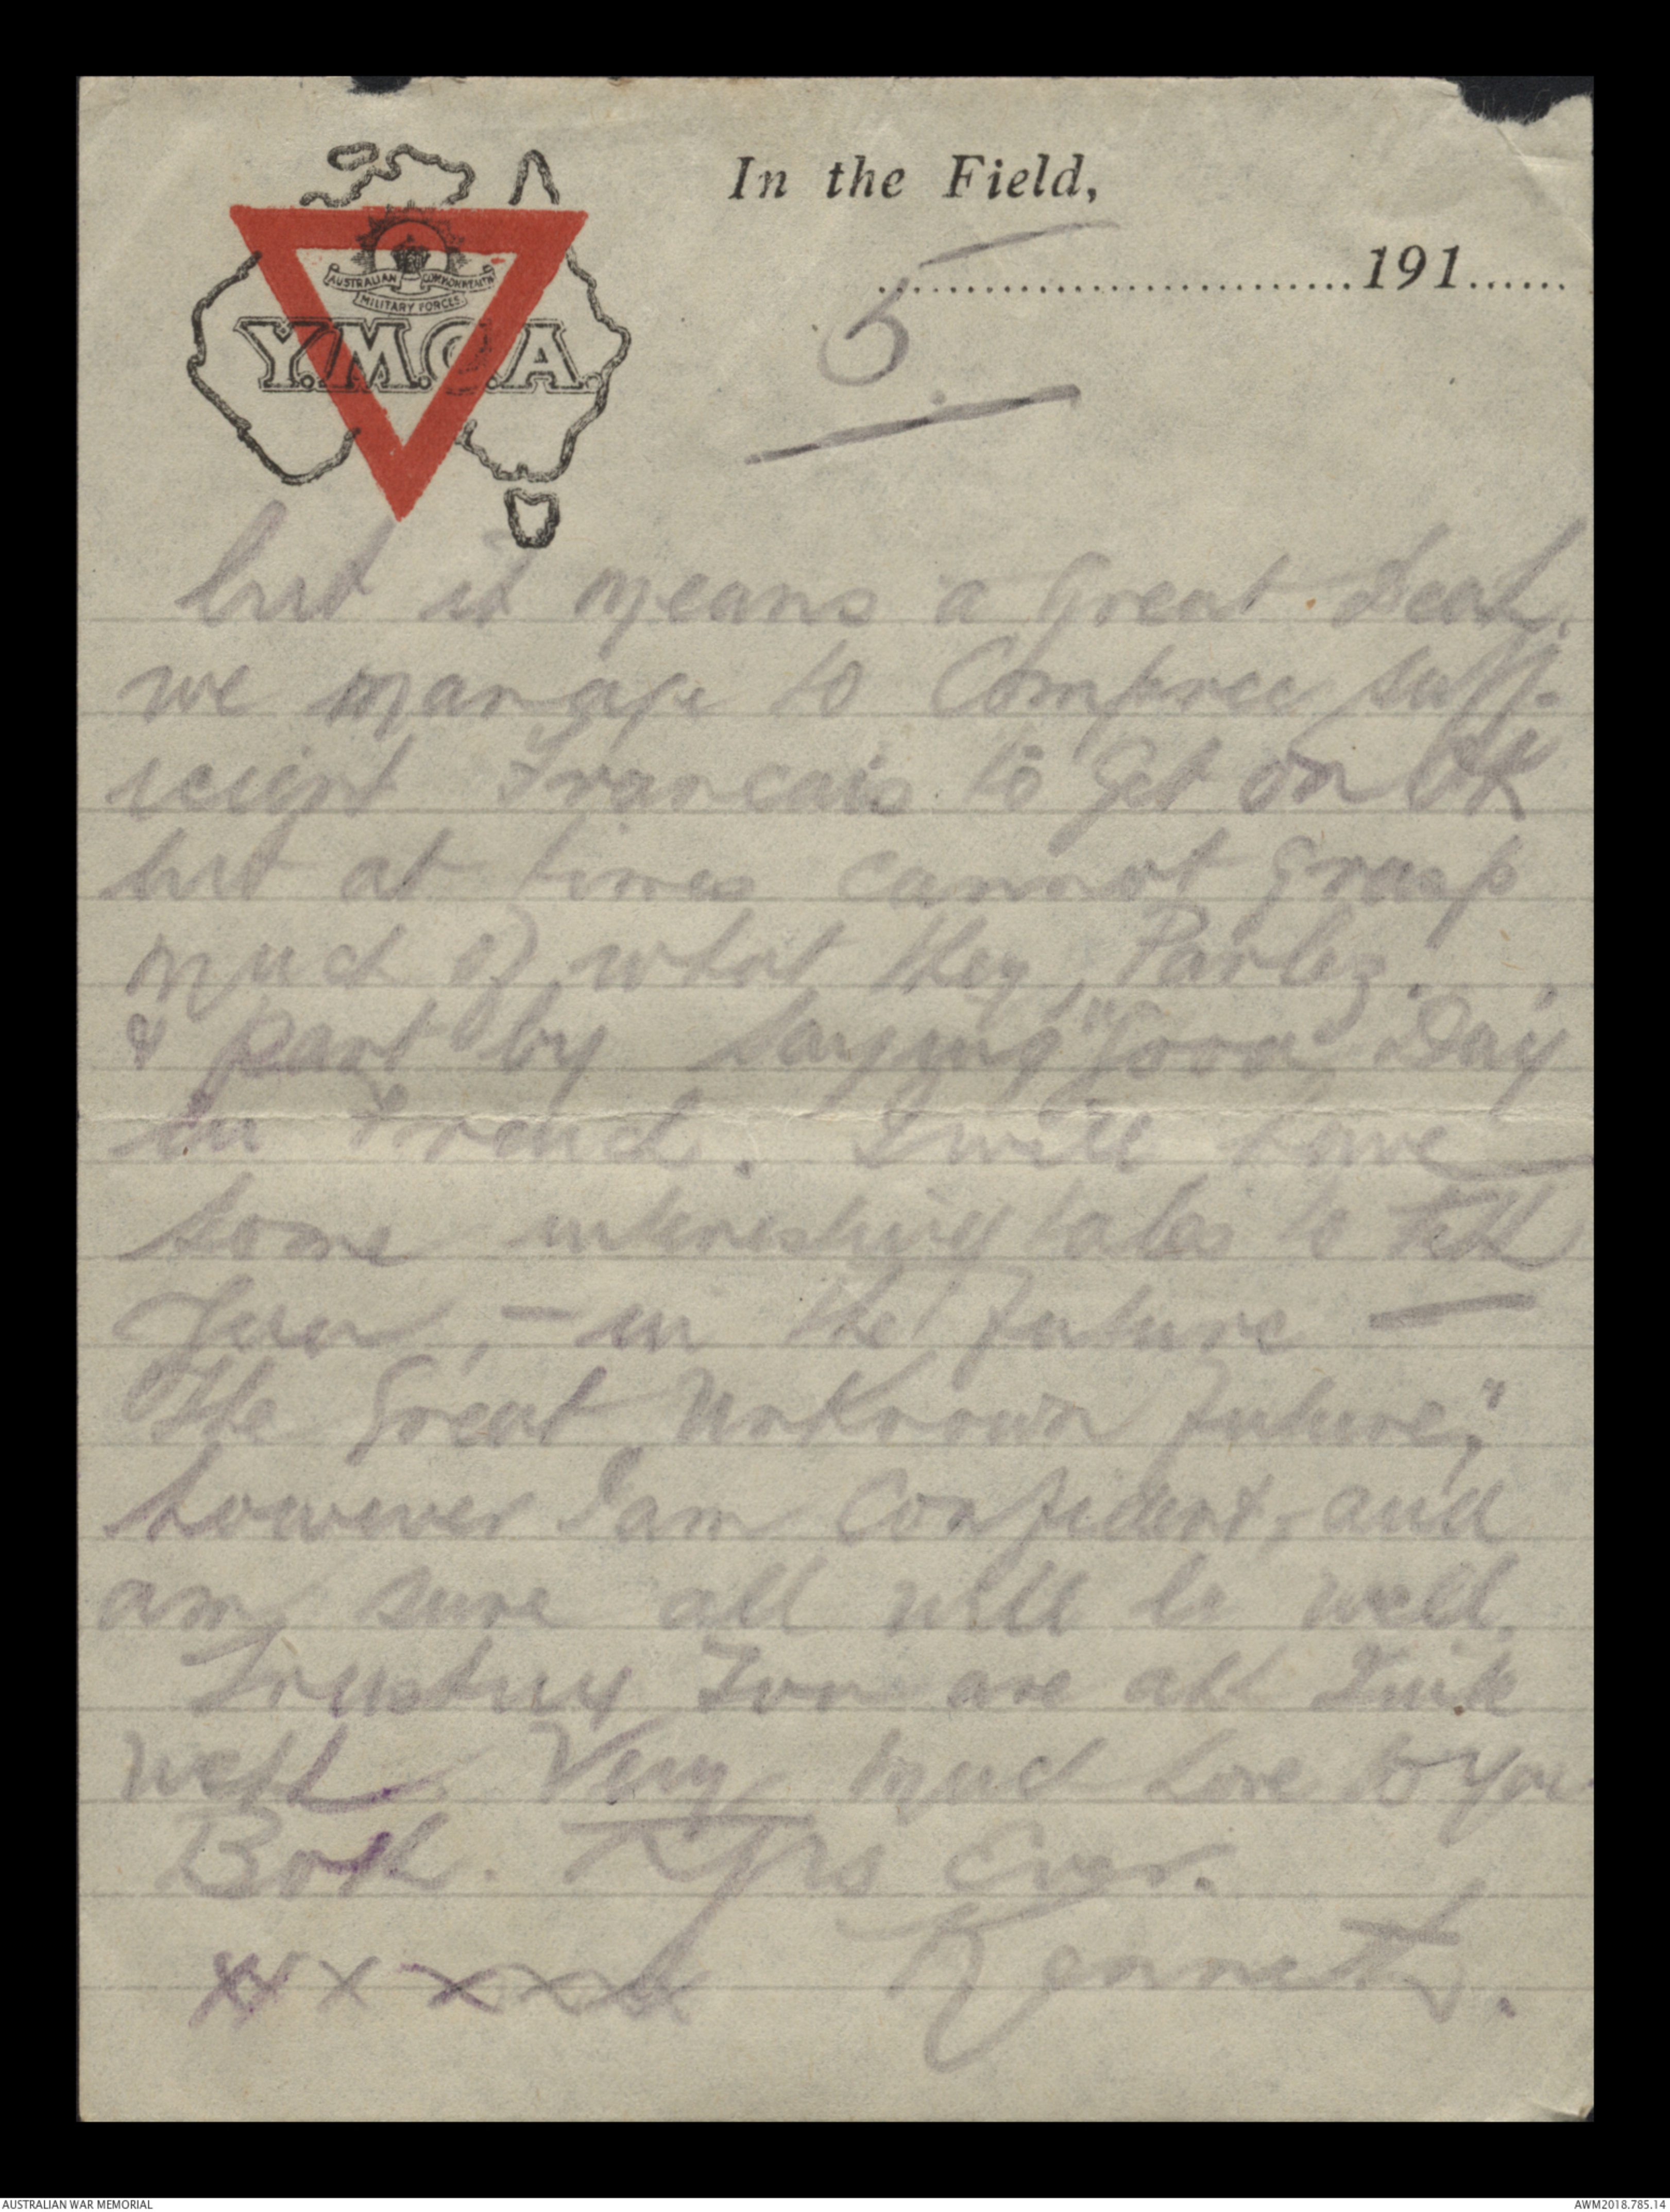 In the Field,
191
AUSTRALIAN COMMONWEALTH
MILITARY FORCES
Y.M.C.A.
5.
but it means a great deal,
we manage to Compree suff-
icient Francais to get on OK
but at times cannot grasp
much of what they, Parlez.
& part by saying "Good Day
in French. I will have
some interesting tales to tell
You, - in the future —
"The Great Unknown future,"
however I am Confident, and
am sure all will be well.
Trusting You are all Quite
well. Very much love to you
Both. Yrs Ever.
xx x x x x Kenneth.
AUSTRALIAN WAR MEMORIAL
AWM2018.785.14